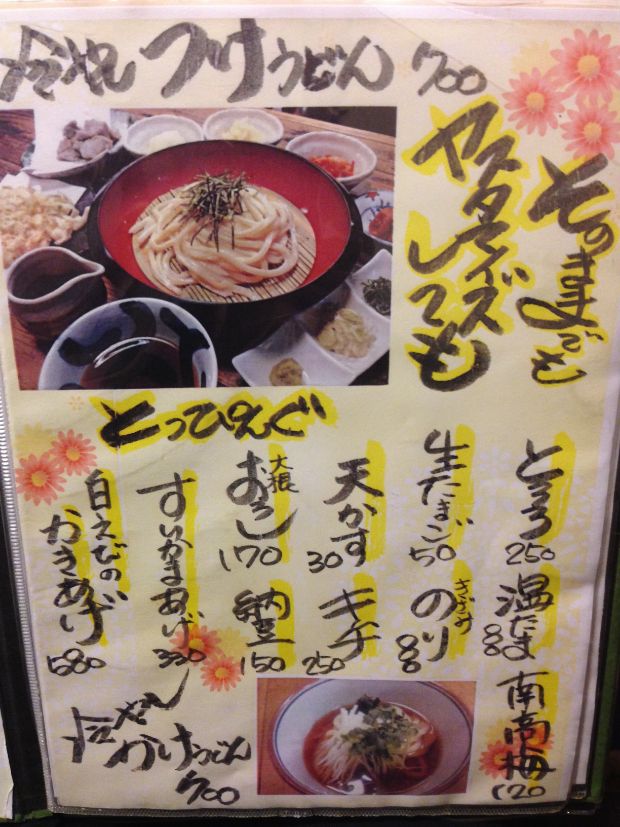 冷やし つけうどん 700
そのままでも
カスタマイズ
しても
とっぴんぐ
とろろ 250
温たま 80
南高梅 120
生たまご 50
きざみ のり 80
天かす 30
キムチ 250
大根 おろし 170
納豆 150
330
白えびの
かきあげ 580
冷やし
かけうどん 700